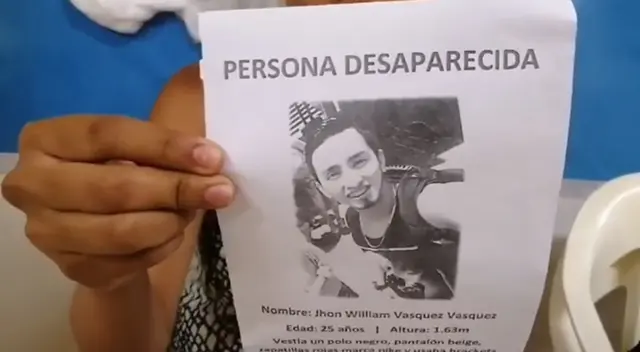 PERSONA DESAPARECIDA
Nombre: Jhon William Vasquez Vasquez
Edad: 25 años | Altura: 1.63m
Vestía un polo negro, pantalón beige,
zapatillas rojas marca nike y usaba brackets